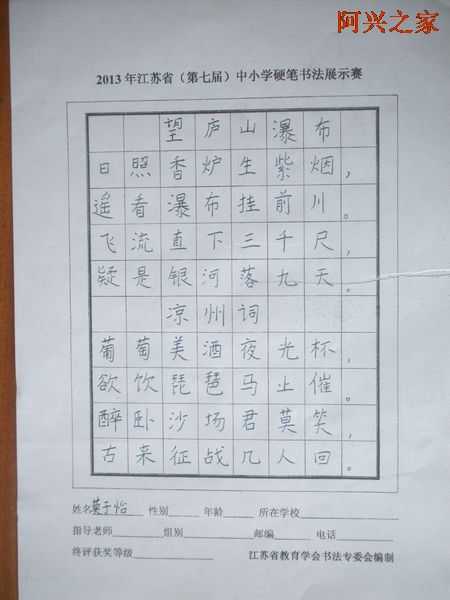 阿兴之家
2013年江苏省（第七届）中小学硬笔书法展示赛
望庐山瀑布
日照香炉生紫烟，
遥看瀑布挂前川。
飞流直下三千尺，
疑是银河落九天。
凉州词
葡萄美酒夜光杯，
欲饮琵琶马止催。
醉卧沙场君莫笑，
古来征战几人回。
姓名 性别 年龄 所在学校
指导老师 组别 邮编 电话
终评获奖等级 江苏省教育学会书法专委会编制